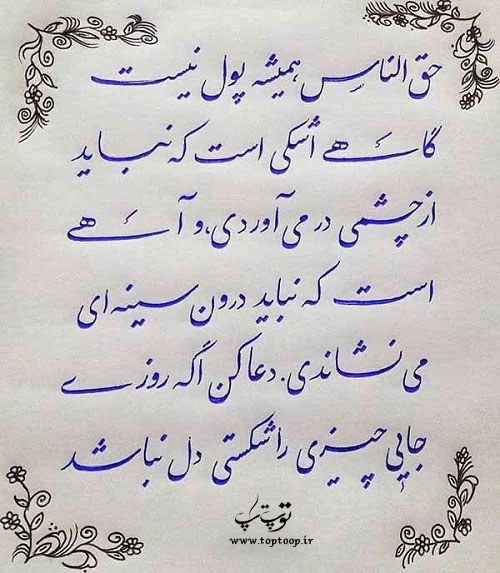 حق الناس همیشه پول نیست
گاهے اشکی است که نباید
از چشمی در می‌آوردی، و آهے
است که نباید درون سینه‌ای
می نشاندی. دعا کن اگه روزے
جایی چیزی را شکستی دل نباشد
توپ تاپ
www.toptoop.ir